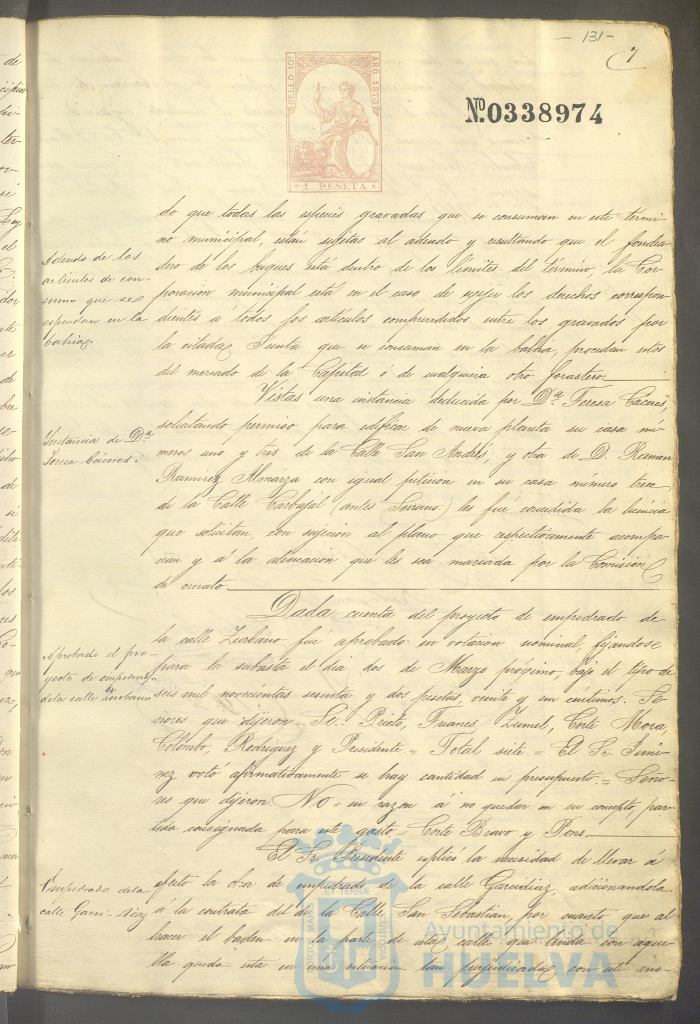 - 131 -
7
SELLO 10º AÑO 1875
1 PESETA
Nº 0338974
do que todas las especies gravadas que se consuman en este térmi-
no municipal, están sujetas al adeudo y resultando que el fondea-
dero de los buques está dentro de los límites del término, la Cor-
poracion municipal está en el caso de exijir los derechos correspon-
dientes á todos los artículos comprendidos entre los gravados por
la citada Junta que se consuman en la bahia, procedan estos
del mercado de la Capital ó de cualquiera otro forastero.
Adeudo de los
artículos de con-
sumo que se
espendan en la
bahia.
Vistas una instancia deducida por Dª Teresa Cáceres,
solicitando permiso para edificar de nueva planta su casa nú-
meros uno y tres de la Calle San Andrés, y otra de D. Roman
Ramirez Almarza con igual peticion en su casa número trece
de la Calle Carbajal (antes Serrano) les fué concedida la licencia
que solicitan, con sujecion al plano que respectivamente acompa-
ñan y á la alineacion que les sea marcada por la Comision
de ornato.
Instancia de Dª
Teresa Cáceres.
Dada cuenta del proyecto de empedrado de
la calle Zurbano fué aprobado en votacion nominal, fijandose
para la subasta el dia dos de Marzo próximo, bajo el tipo de
seis mil novecientas sesenta y dos pesetas, veinte y un céntimos. Se-
ñores que dijeron Si. Prieto, Trianes, Zumel, Corte Mora,
Colombo, Rodriguez y Presidente = Total siete = El Sr. Jimé-
nez votó afirmativamente si hay cantidad en presupuesto. = Seño-
res que dijeron No = en razon á no quedar en su concepto, par-
tida consignada para este gasto = Corte Bravo y Pons.
Aprobado el pro-
yecto de empedrado
de la calle Zurbano
El Sr. Presidente esplicó la necesidad de llevar á
efecto la obra de empedrado de la calle Garcidiaz, adicionandola
á la contrata del de la Calle San Sebastian, por cuanto que al
hacer el baden en la parte de esta calle que linda con aque-
lla queda esta en una situacion tan perjudicada, con este mo-
Empedrado de la
calle Garci-diaz
Ayuntamiento de
HUELVA